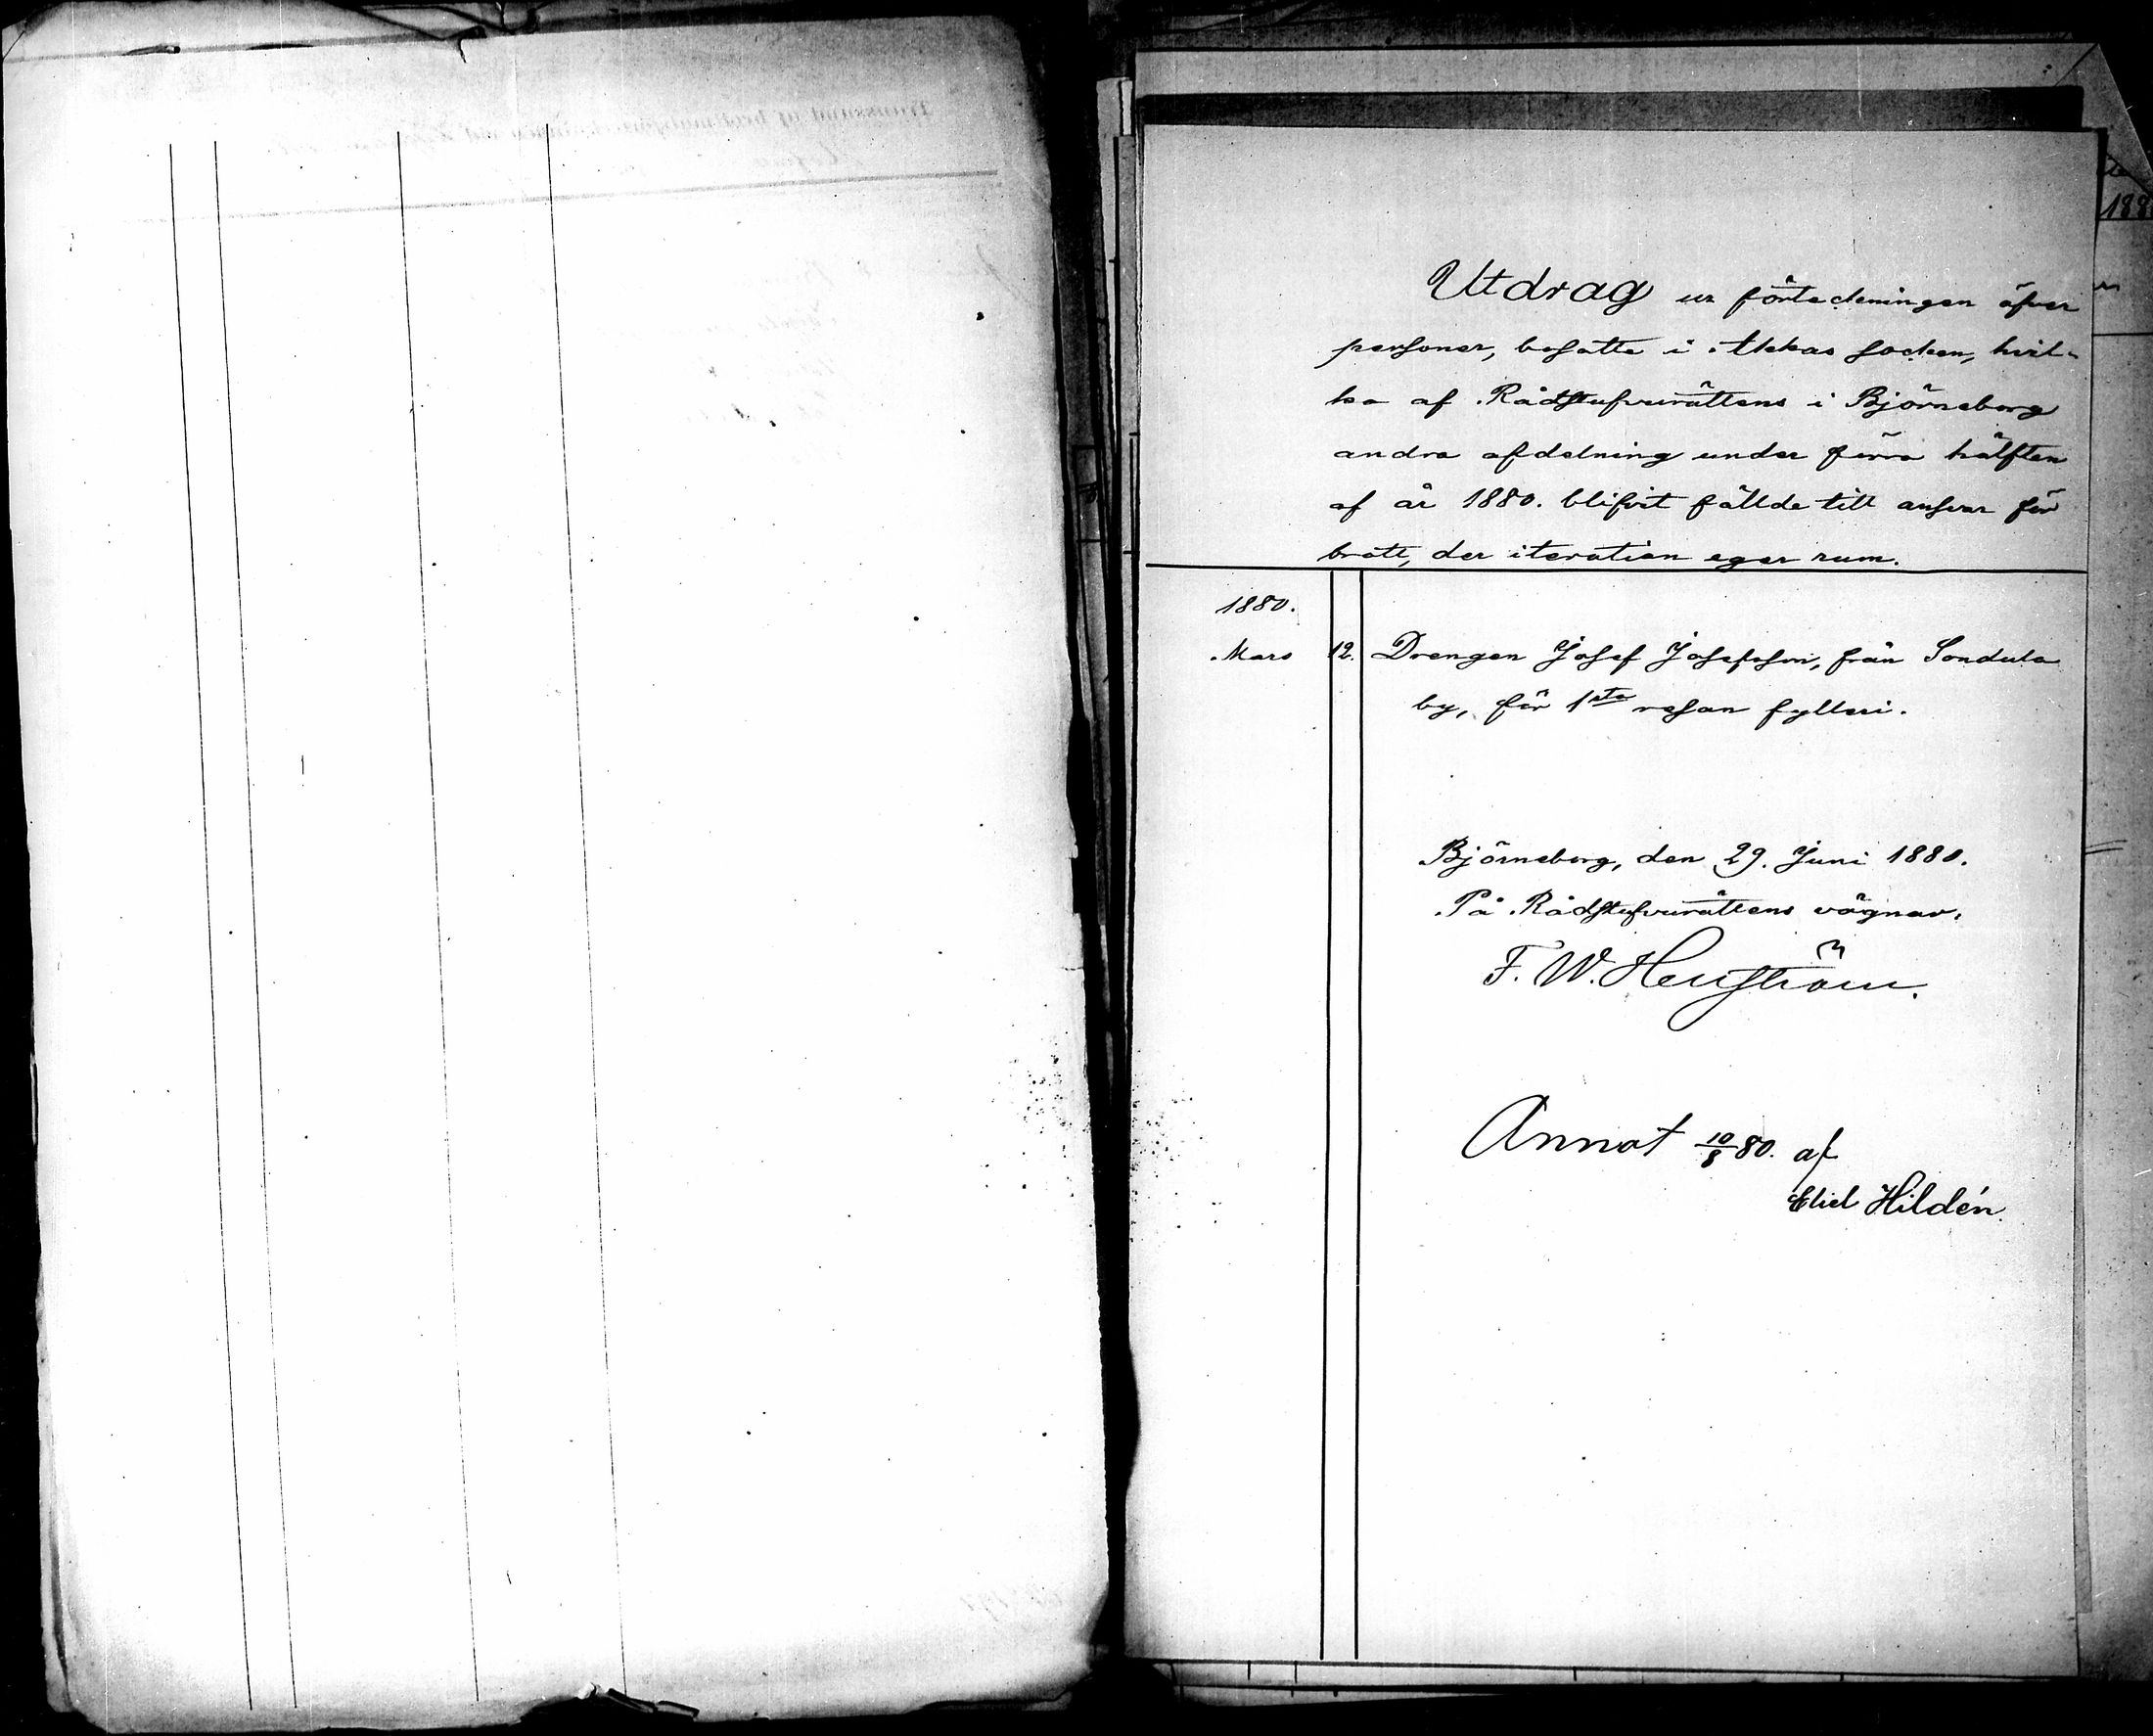 Utdrag ur förteckningen öfver
personer, bosatte i Akkas socken, hvil-
ka af Rådstufvurättens i Björneborg
andra afdelning under förra hälften
af år 1880. blifvit fällde till ansvar för
brott, der iteration eger rum.
1880.
Mars 12. Drengen Josef Josefsson, från Sondula
by, för 1sta resan fylleri.
Björneborg, den 29. Juni 1880.
På Rådstufvurättens vägnar,
F. W.
Annot 10/8 80. af
Eliel Hildén.
188